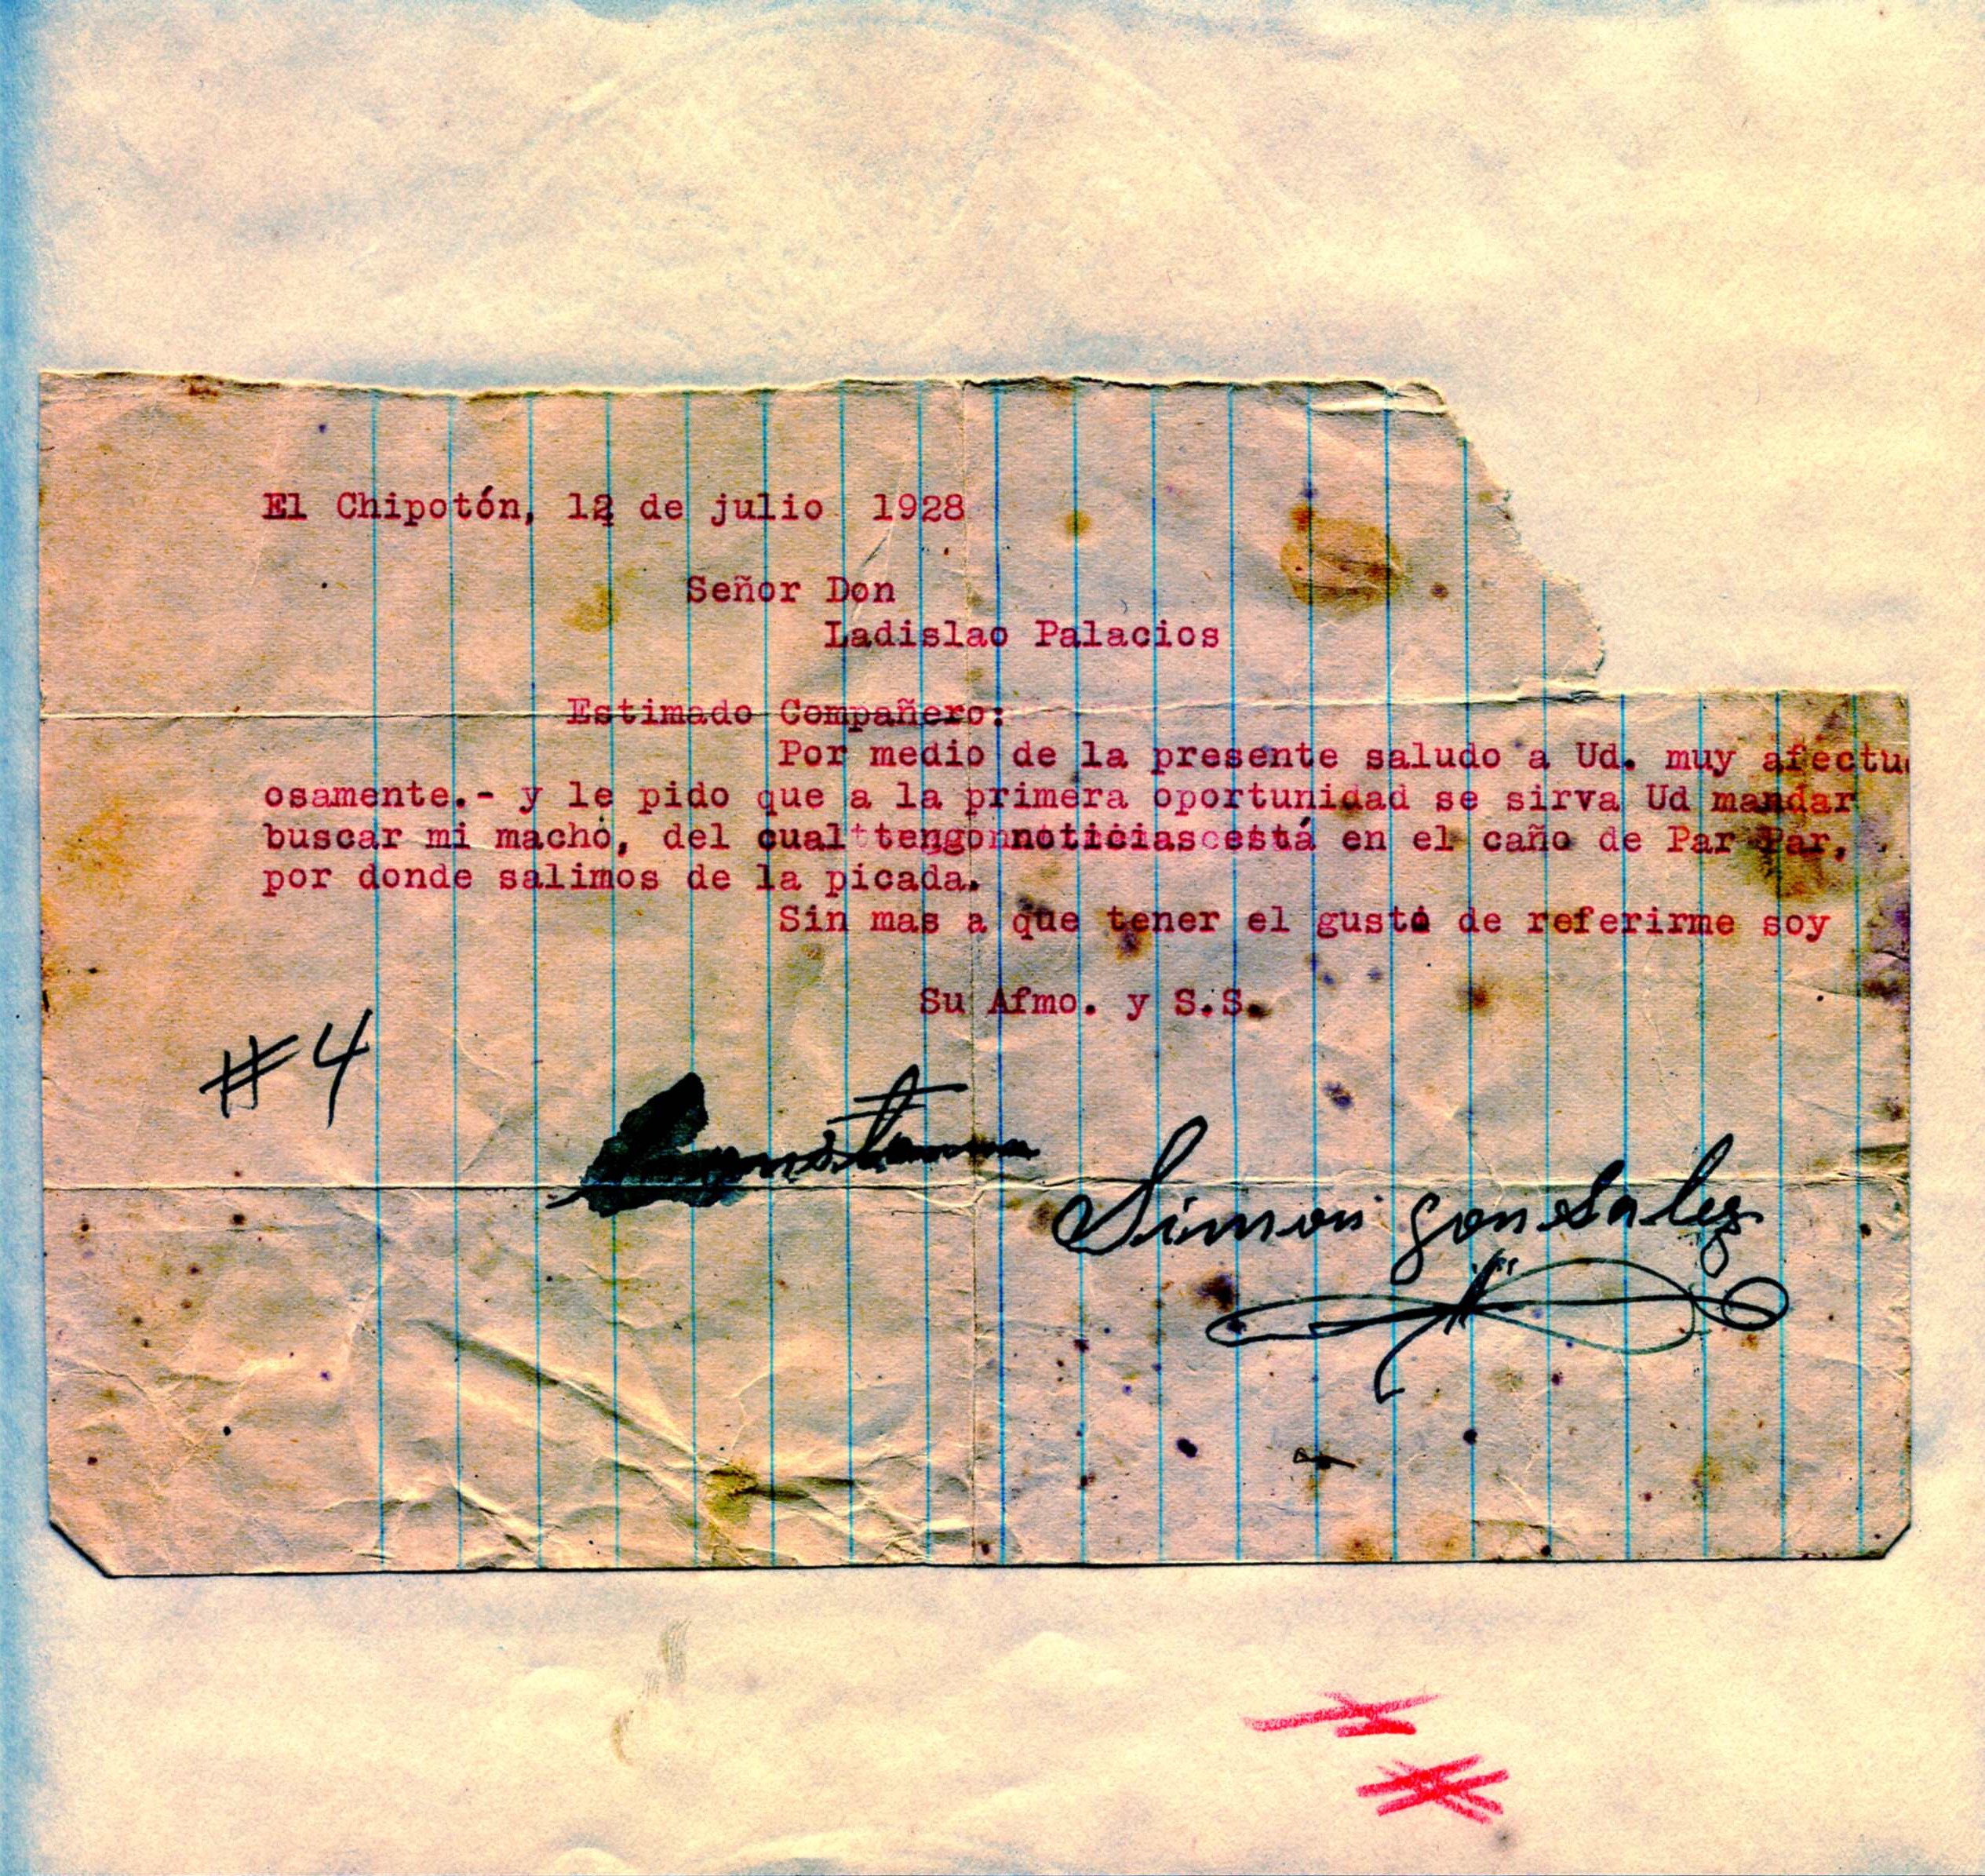 El Chipotón, 12 de julio 1928
Señor Don
Ladislao Palacios
Estimado Compañero:
Por medio de la presente saludo a Ud. muy afectu
osamente.- y le pido que a la primera oportunidad se sirva Ud mandar
buscar mi macho, del cual tengo noticias está en el caño de Par Par,
por donde salimos de la picada.
Sin mas a que tener el gusto de referirme soy
Su Afmo. y S.S.
#4
Simon gonsalez